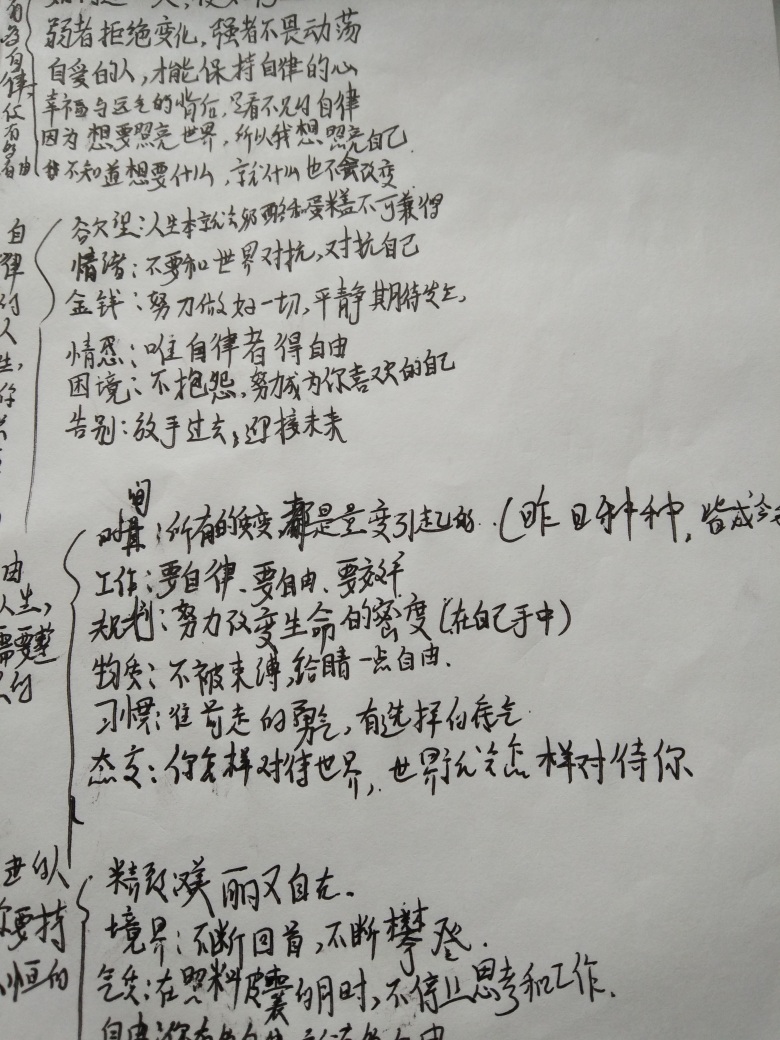 弱者拒绝变化,强者不畏动荡
自爱的人,才能保持自律的心
幸福与运气的背后,是看不见的自律
因为想要照亮世界,所以我想照亮自己
不知道想要什么,就什么也不会改变
自律的人生,你
欲望:人生本就是奶酪和蛋糕不可兼得
情绪:不要和世界对抗,对抗自己
金钱:努力做好一切,平静期待发生,
情感:唯自律者得自由
困境:不抱怨,努力成为你喜欢的自己
告别:放手过去,迎接未来
时间:所有的质变,都是量变引起的.(昨日种种,皆成今
工作:要自律、要自由、要效率
规划:努力改变生命的密度(在自己手中)
物质:不被束缚,给自由.
习惯:往前走的勇气,有选择的底气
态度:你怎样对待世界,世界就怎样对待你
由
人生,
需要整
精致美丽又自在.
境界:不断回首,不断攀登.
气质:在照料皮囊的同时,不停止思考和工作.
要持
恒的
自由:你